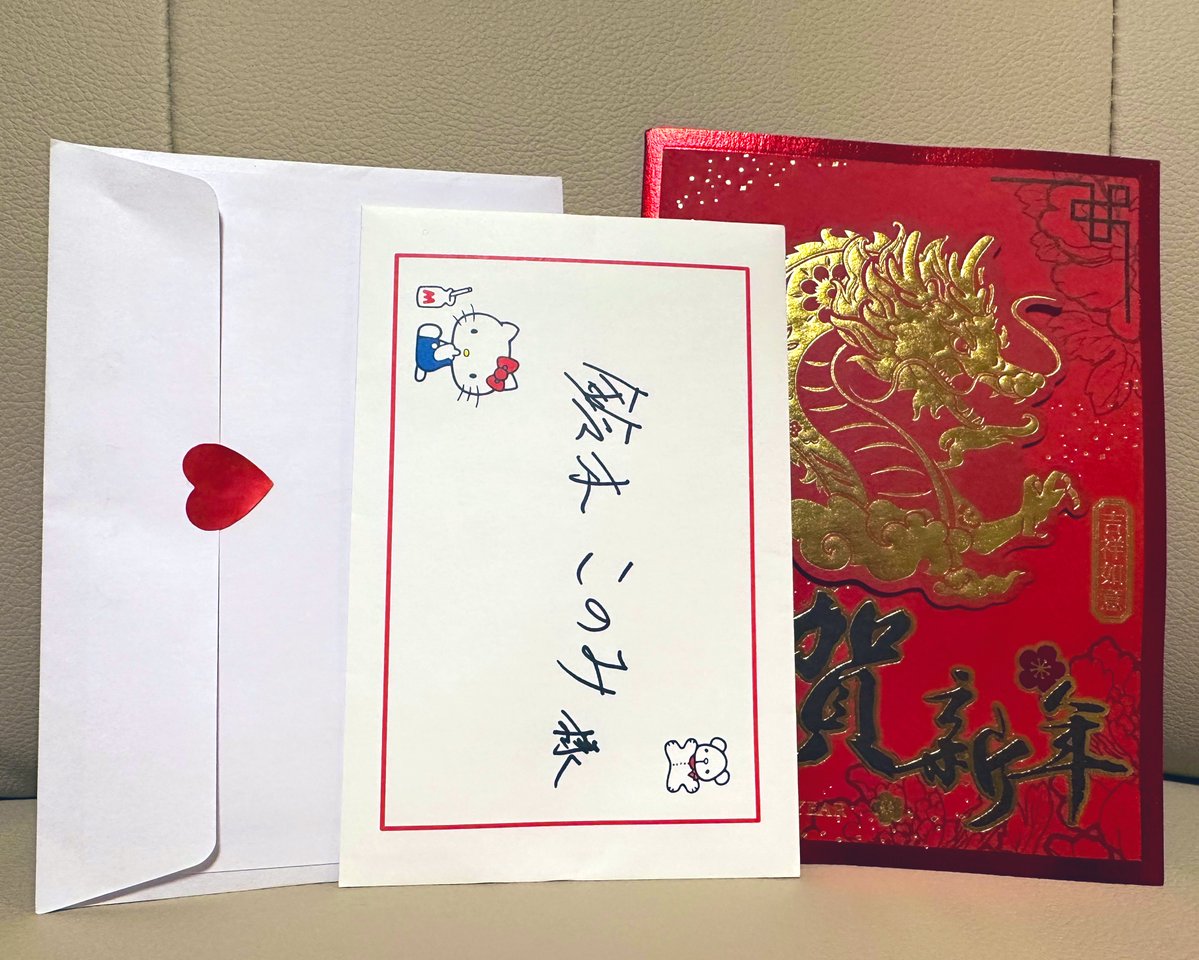 鈴木 このみ 様
吉祥如意
賀新年
YEAR
M